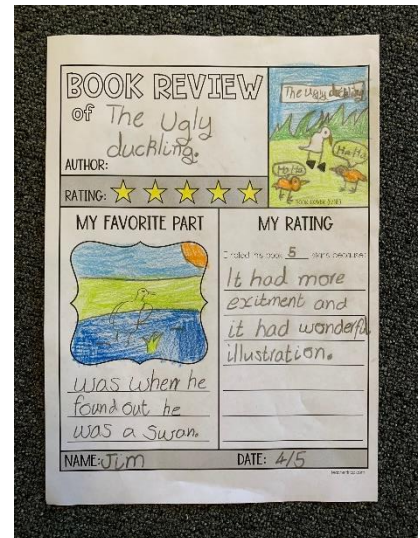 BOOK REVIEW
of The Ugly
duckling.
AUTHOR:
The Ugly duckling
Ha Ha
Ha Ha
RATING:
MY FAVORITE PART
was when he
found out he
was a Swan.
MY RATING
I rated this book 5 stars because:
It had more
excitment and
it had wonderful
illustration.
NAME: Jim
DATE: 4/5